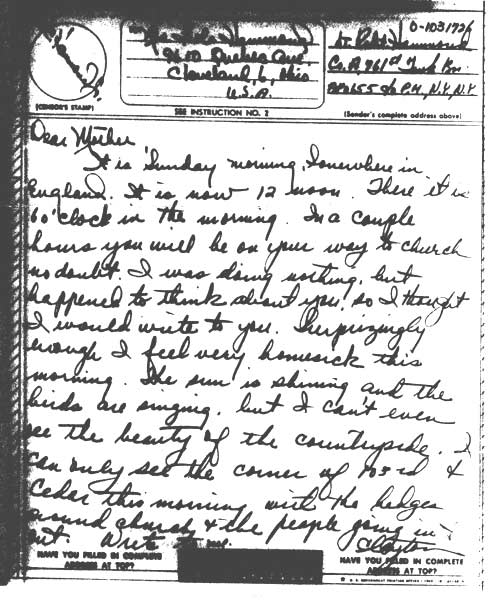 Hammond
Ave.
Cleveland, 6, Ohio
U.S.A.
(CENSOR'S STAMP)
SEE INSTRUCTION NO. 2
Lt. Hammond
O-1031726
Co. A, 761st Tank Bn.
APO 655 c/o P.M., N.Y., N.Y.
(Sender's complete address above)
Dear Mother
It is Sunday morning, Somewhere in
England. It is now 12 noon. There it is
6 o'clock in the morning. In a couple
hours you will be on your way to church
no doubt. I was doing nothing, but
happened to think about you, so I thought
I would write to you. Surprizingly
enough I feel very homesick this
morning. The sun is shining and the
birds are singing, but I can't even
see the beauty of the countryside. I
can only see the corner of 105rd &
Cedar this morning with the hedges
around church & the people going in
out. Write Clayton
HAVE YOU FILLED IN COMPLETE
ADDRESS AT TOP?
HAVE YOU FILLED IN COMPLETE
ADDRESS AT TOP?
U. S. GOVERNMENT PRINTING OFFICE